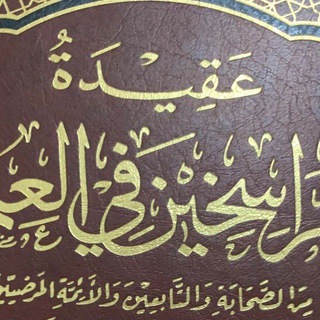 عَقِيدَةُ
راسِخين في العِلم
مِنَ الصَّحَابَةِ وَالتَّابِعِينَ وَالأَئِمَّةِ المَرْضِيِّين